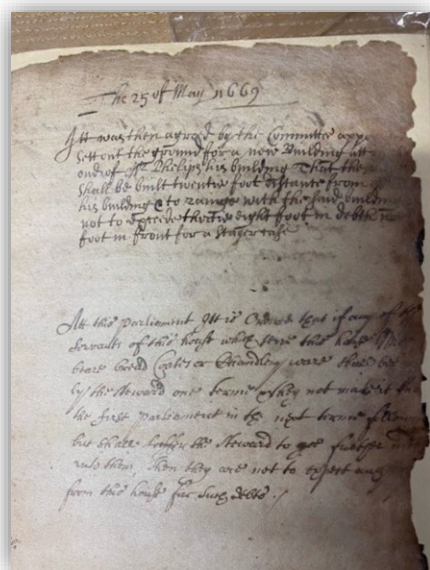 The 25 of May 1669
Itt was then agreed by the Committee app
sett out the ground for a new Building att
end of Mr Phelips his building That the
shall be built twentie foot distante from
his building & to range with the said building
not to exceede thertie eight foot in debth
foot in front for a Stayer case
Att this Parliament Itt is Ordered that if any of
Servants of this house which serve this house
beare bread Coales or Chandlery ware shall bee
by the Steward one Terme & they not make it
the first Parliament in the next terme
but shall suffer the Steward to goe further
unto them, then they are not to expect any
from this house for such debts